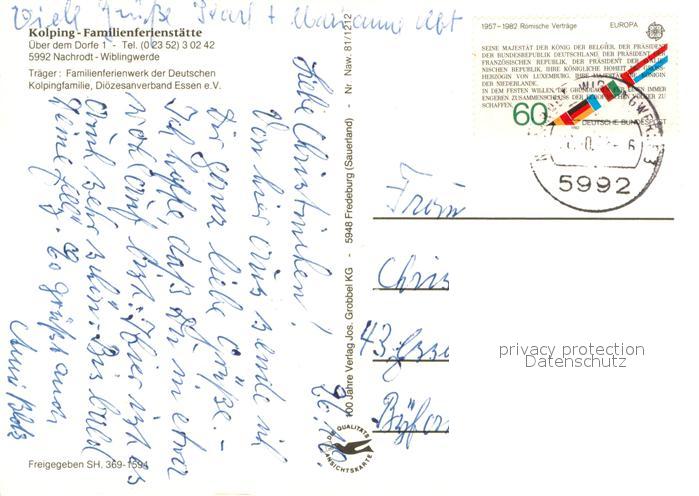 Viele Grüße
Kolping-Familienferienstätte
Über dem Dorfe 1 - Tel. (0 23 52) 3 02 42
5992 Nachrodt-Wiblingwerde
Träger: Familienferienwerk der Deutschen
Kolpingfamilie, Diözesanverband Essen e.V.
26.10.
Liebe Christinchen!
Von hier aus sende ich
Dir ganz liebe Grüße. –
Ich hoffe, daß Du in etwa
wohlauf bist. Hier ist es
auch sehr schön. Bis bald
Deine
Es grüßt auch
Freigegeben SH. 369-1594
100 Jahre Verlag Jos. Grobbel KG - 5948 Fredeburg (Sauerland) - Nr. Naw. 81/1212
QUALITÄTS
ANSICHTSKARTE
1957-1982 Römische Verträge EUROPA
SEINE MAJESTÄT DER KÖNIG DER BELGIER, DER PRÄSIDENT
DER BUNDESREPUBLIK DEUTSCHLAND, DER PRÄSIDENT DER
FRANZÖSISCHEN REPUBLIK, DER PRÄSIDENT DER ITALIE-
NISCHEN REPUBLIK, IHRE KÖNIGLICHE HOHEIT DIE GROSS-
HERZOGIN VON LUXEMBURG, IHRE MAJESTÄT DIE KÖNIGIN
DER NIEDERLANDE,
IN DEM FESTEN WILLEN, DIE GRUNDLAGEN FÜR EINEN IMMER
ENGEREN ZUSAMMENSCHLUSS DER EUROPÄISCHEN VÖLKER ZU
SCHAFFEN
60
DEUTSCHE BUNDESPOST
5992
Chris
43 Esse
Byfan
privacy protection
Datenschutz